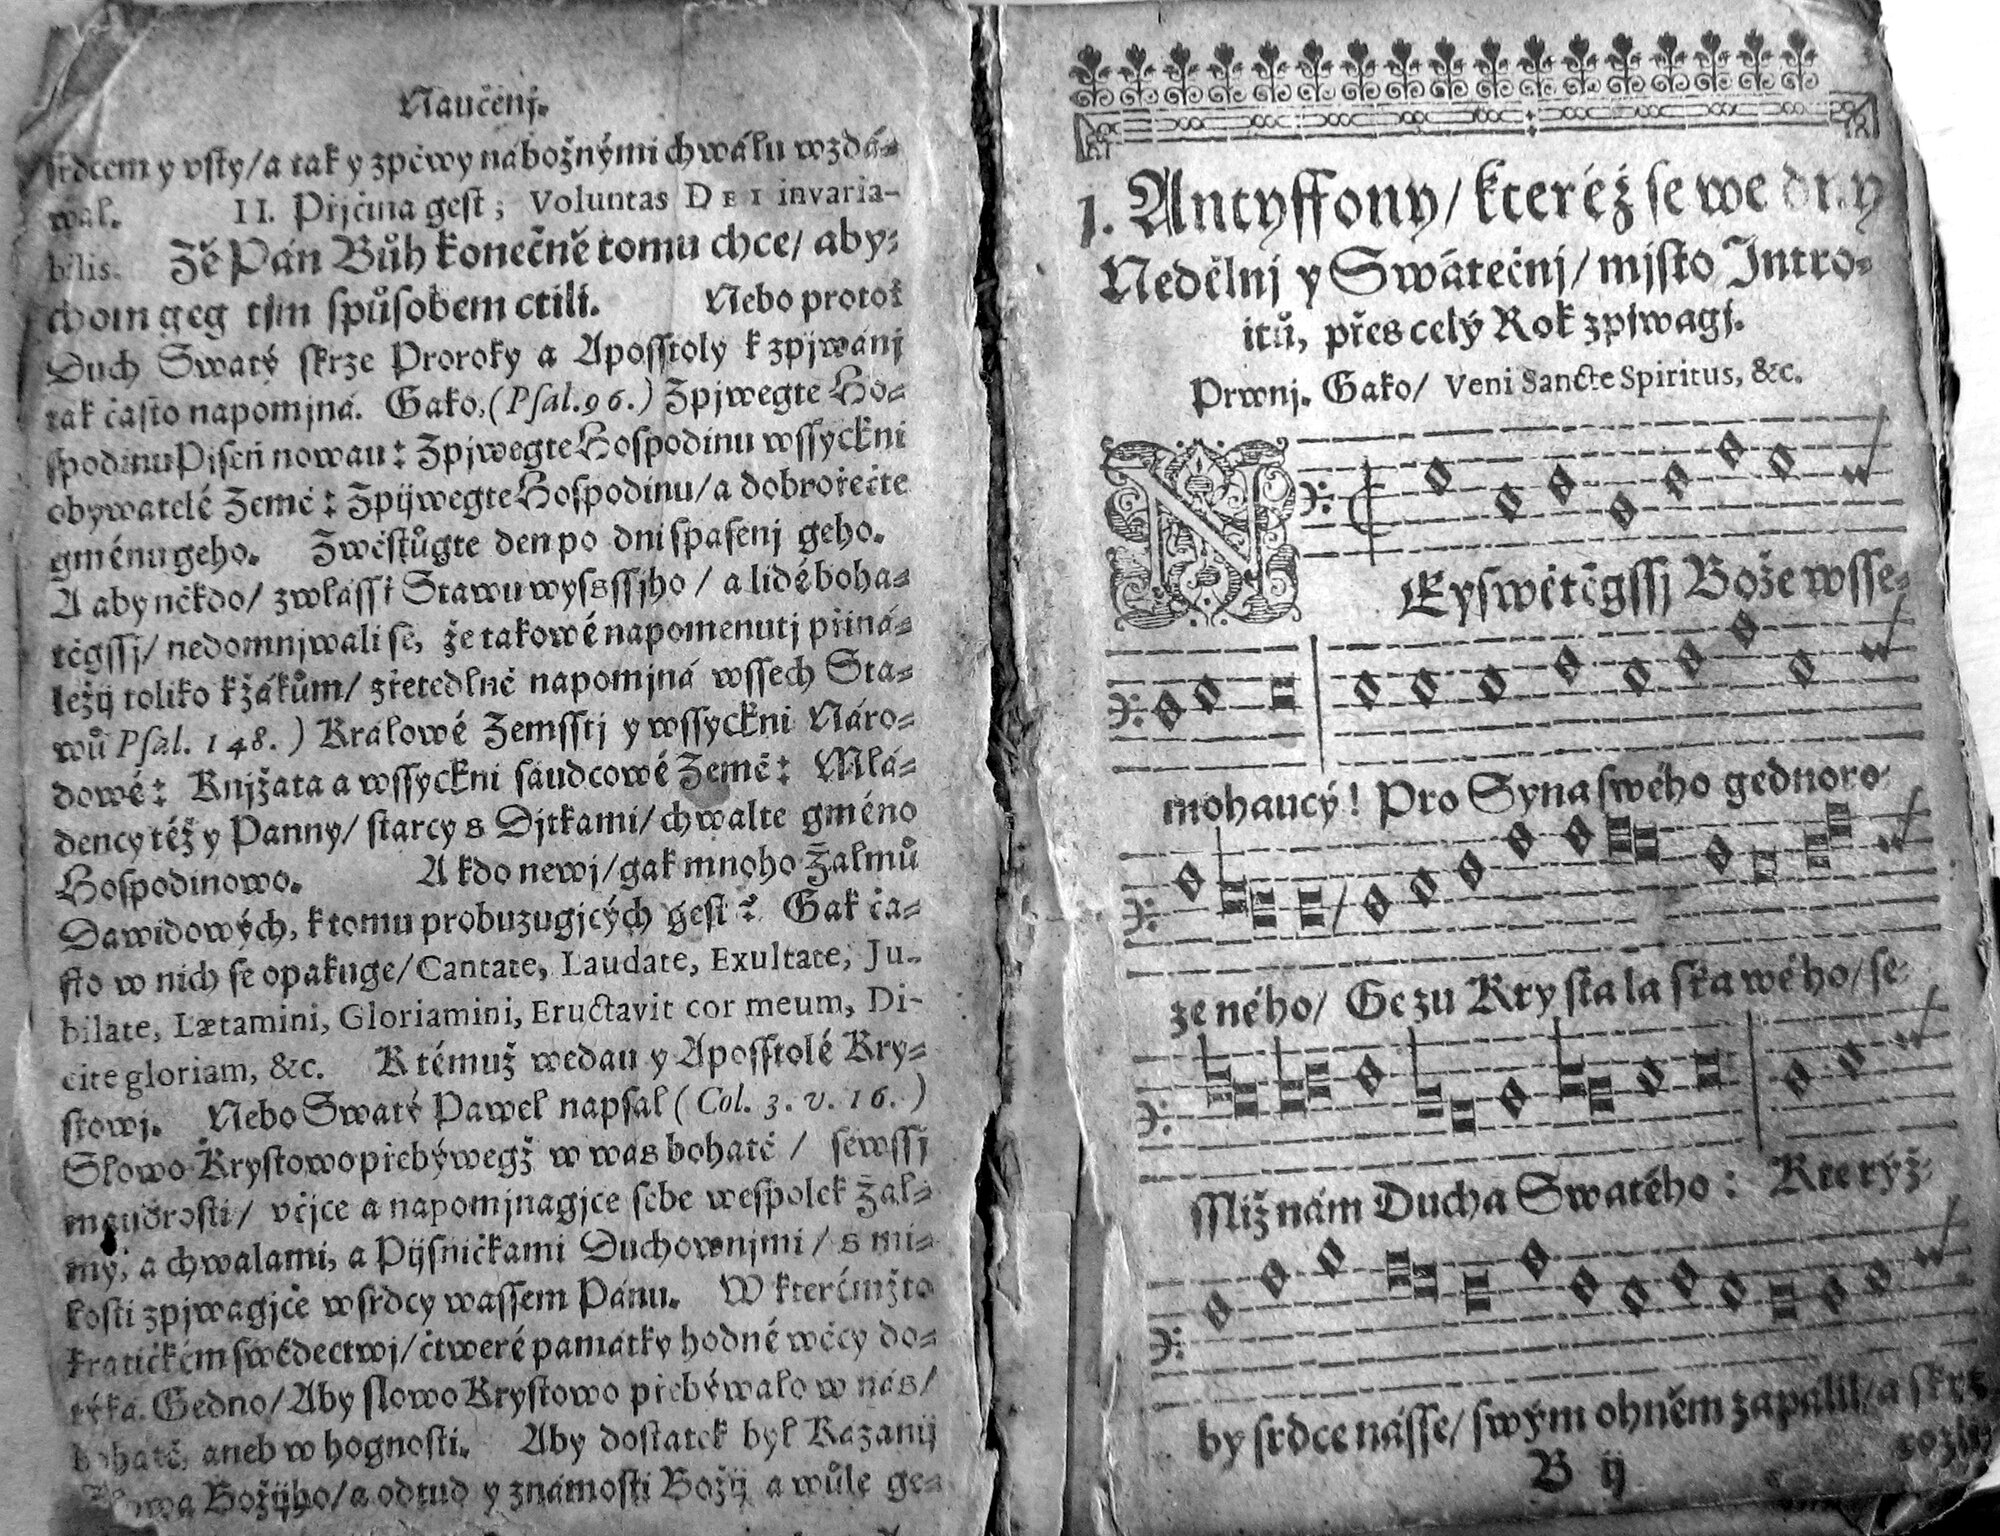 Naučenj.
srdcem y vsty/ a tak y zpěwy nábožnými chwálu wzdá-
wal. II. Přjčina gest; Voluntas DEI invaria-
bilis. Žě Pán Bůh konečně tomu chce/ aby-
chom geg tjm spůsobem ctili. Nebo protož
Duch Swatý skrze Proroky a Aposstoly k zpjwánj
tak často napomjná. Gako, (Psal. 96.) Zpjwegte Ho-
spodinu Pjseň nowau: Zpjwegte Hospodinu wssyckni
obywatelé Země: Zpijwegte Hospodinu/ a dobrořečte
gménu geho. Zwěstůgte den po dni spasenj geho.
A aby někdo/ zwlásst Stawu wysssjho/ a lidé boha-
těgssj/ nedomnjwali se, že takowé napomenutj přiná-
ležij toliko k žákům/ zřetedlně napomjná wssech Sta-
wů Psal. 148.) Králowé Zemsstj y wssyckni Náro-
dowé: Knjžata a wssyckni saudcowé Země: Mlá-
dency též y Panny/ starcy s Djtkami/ chwalte gméno
Hospodinowo. A kdo newj/ gak mnoho Žalmů
Dawidowých, k tomu probuzugjcých gest? Gak ča-
sto w nich se opakuge/ Cantate, Laudate, Exultate, Ju-
bilate, Lætamini, Gloriamini, Eructavit cor meum, Di-
cite gloriam, &c. K témuž wedau y Aposstolé Kry-
stowj. Nebo Swatý Pawel napsal (Col. 3. v. 16.)
Slowo Krystowo přebýwegž w was bohatě/ sewssj
maudrosti/ včjce a napomjnagjce sebe wespolek Žal-
my, a chwalami, a Pijsničkami Duchownjmi/ s mi-
kosti zpjwagjce w srdcy wassem Pánu. W kterémžto
kratičkém swědectwj/ čtweré památky hodné wěcy do-
týká. Gedno/ Aby slowo Krystowo přebýwalo w nás/
bohatě, aneb w hognosti. Aby dostatek był Kázanij
Slowa Božijho/ a odtud y známosti Božij a wůle ge-
1. Antyffony/ kteréž se we dny
Nedělnj y Swátečnj/ mjsto Intro-
itů, přes celý Rok zpjwagj.
Prwnj. Gako/ Veni Sancte Spiritus, &c.
NEyswětěgssj Bože wsse-
mohaucý! Pro Syna swého gednoro-
zeného/ Gezu Krysta laskawého/ se-
ssliž nám Ducha Swatého: Kterýž-
by srdce násse/ swým ohněm zapálil/ a skrz
B ij